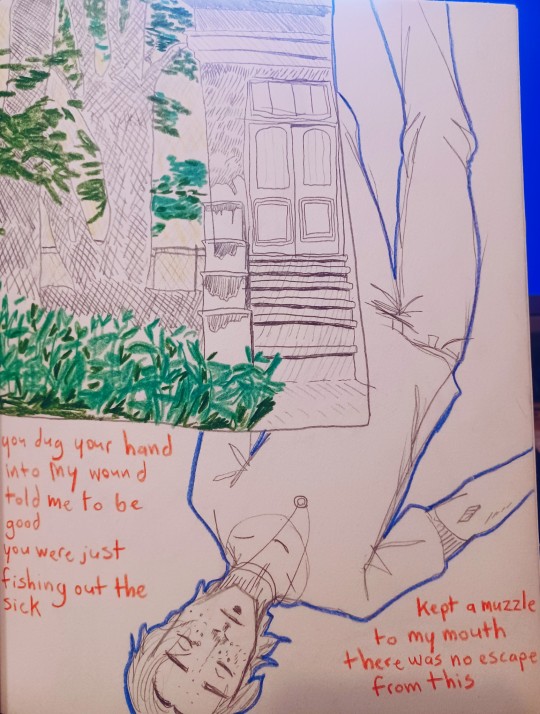 you dug your hand
into my wound
told me to be
good
you were just
fishing out the
sick
Kept a muzzle
to my mouth
there was no escape
from this